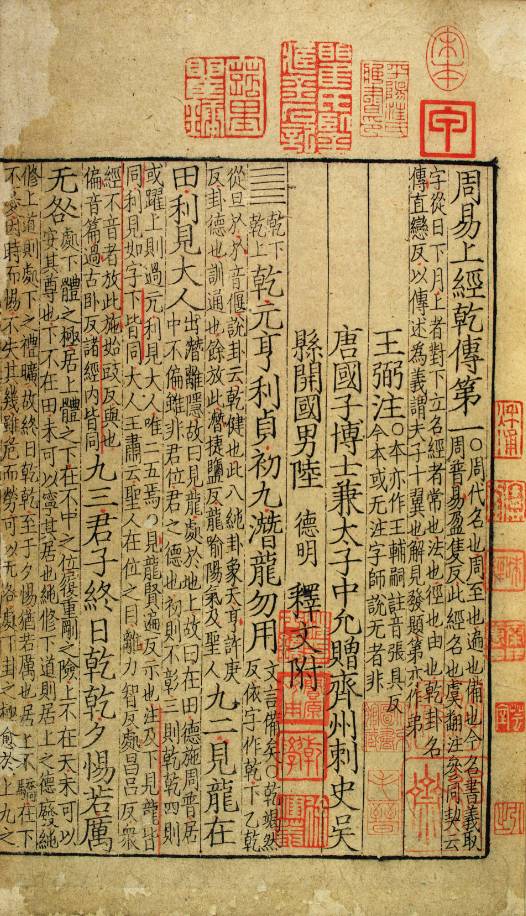 宋本
甲
周易上經乾傳第一
○周代名也周至也遍也備也今名書義取
周普易盈隻反此經名也虞翻注參同契云
字從日下月上者對下立名經者常也法也徑也由也乾卦名
傳直戀反以傳述為義謂夫子十翼也解見發題第亦作弟
王弼注
○本亦作王輔嗣註音張具反
今本或无注字師說无者非
唐國子博士兼太子中允贈齊州刺史吳
縣開國男陸 德明 釋文附
䷀
乾下
乾上
乾元亨利貞初九潛龍勿用
文言備矣○乾竭然
反依字作乾下乙乾
從旦㫃㫃音偃說卦云乾健也此八純卦象天亨許庚
反卦德也訓通也餘放此潛捷鹽反龍喻陽氣及聖人
九二見龍在
田利見大人
出潛離隱故曰見龍處於地上故曰在田德施周普居
中不偏雖非君位君之德也初則不彰三則乾乾四則
或躍上則過亢利見大人唯二五焉○見龍賢遍反示也注及下見龍皆
同利見如字下皆同大人王肅云聖人在位之目離力智反處昌呂反眾
經不音者放此施始豉反與也
偏音篇過古卧反諸經內皆同
九三君子終日乾乾夕惕若厲
无咎
處下體之極居上體之下在不中之位履重剛之險上不在天未可以
安其尊也下不在田未可以寧其居也純修下道則居上之德廢純
修上道則處下之禮曠故終日乾乾至于夕惕猶若厲也居上不驕在下
不憂因時而惕不失其幾雖危而勞可以无咎處下卦之極愈於上九之